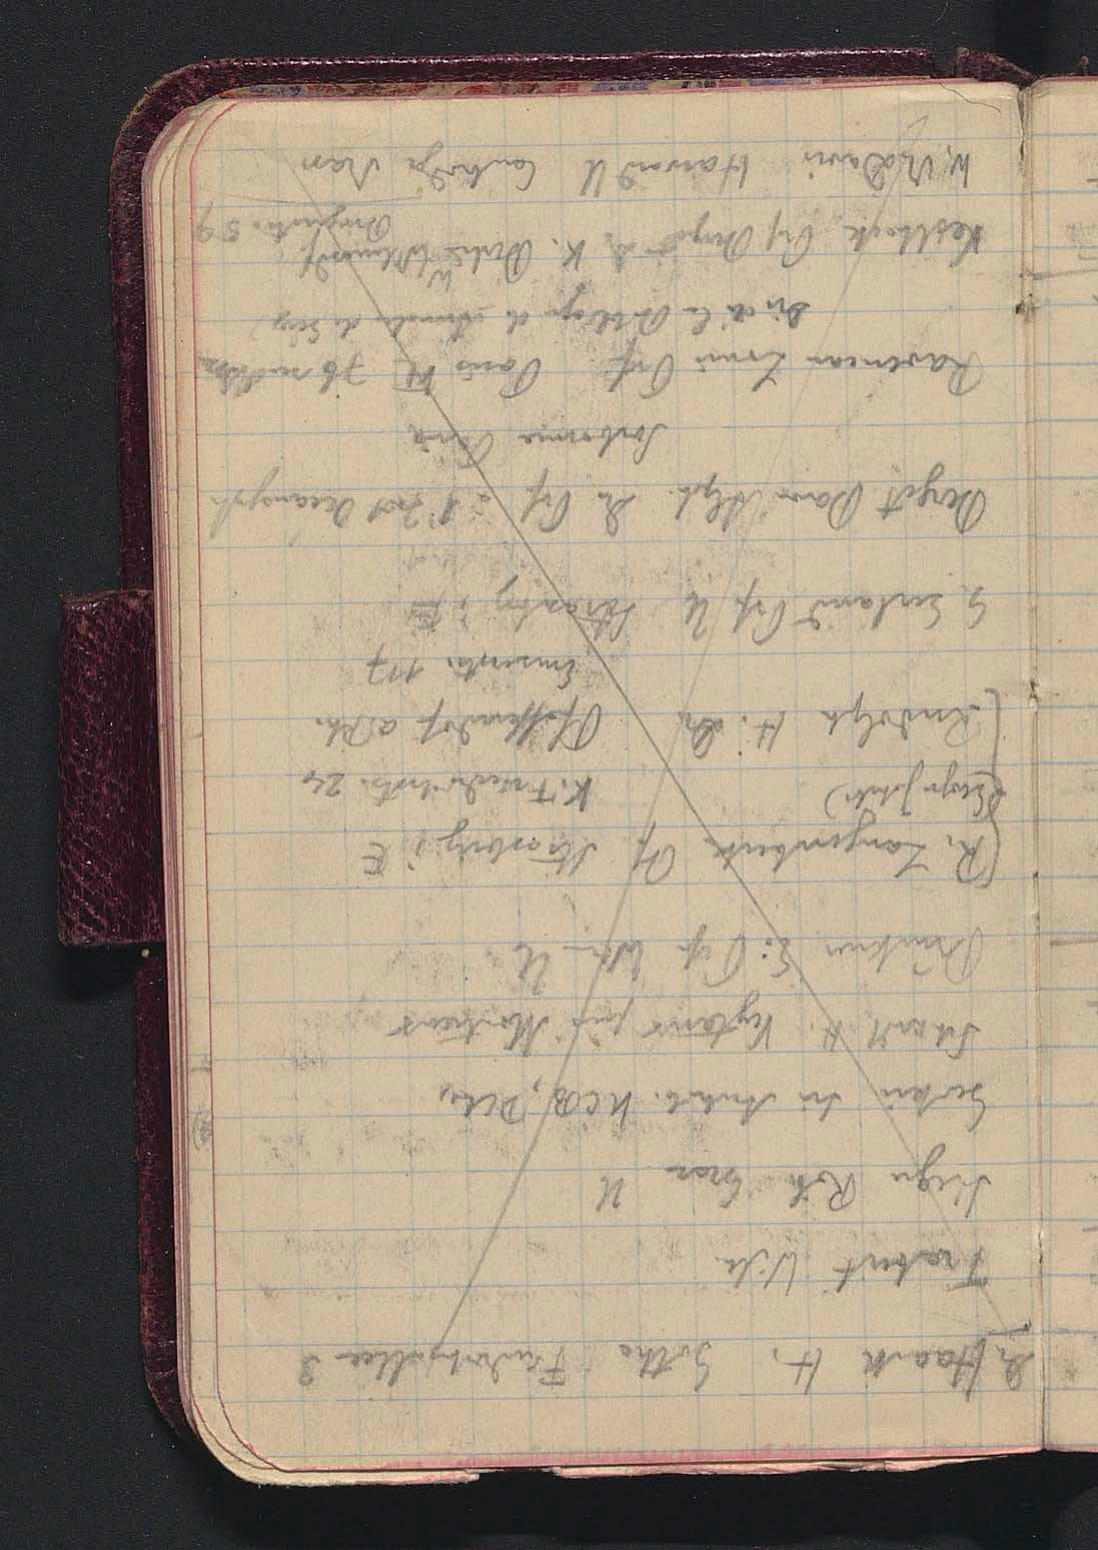 Dr Haack H. Gotha Friedrichsallee 3
Trabert Wilh.
Sieger Rob Graz U
Gerlani
Schardt H. Veytaux près Montreux
Brückner E. Prof Wien U.
(R. Langenbeck Pf Strassburg i E
(Geogr Jahrb) K. Friedrichstr. 24
Rudolph H. Dr Pfaffendorf a Rh.
Emserstr. 117
G. Gerland Prf U Strassburg i E
Berget Dr Prf Oceanogr.
Sorbonne Paris
Raveneau Louis Prf. Paris VI 76 rue d'Assas
Dir de la Bibliogr. d. Annales de Géog
Keilhack Prf Dr K. Berlin Wilmersdf
Bingerstr. 59
W. M. Davis Harvard U Cambridge Mass